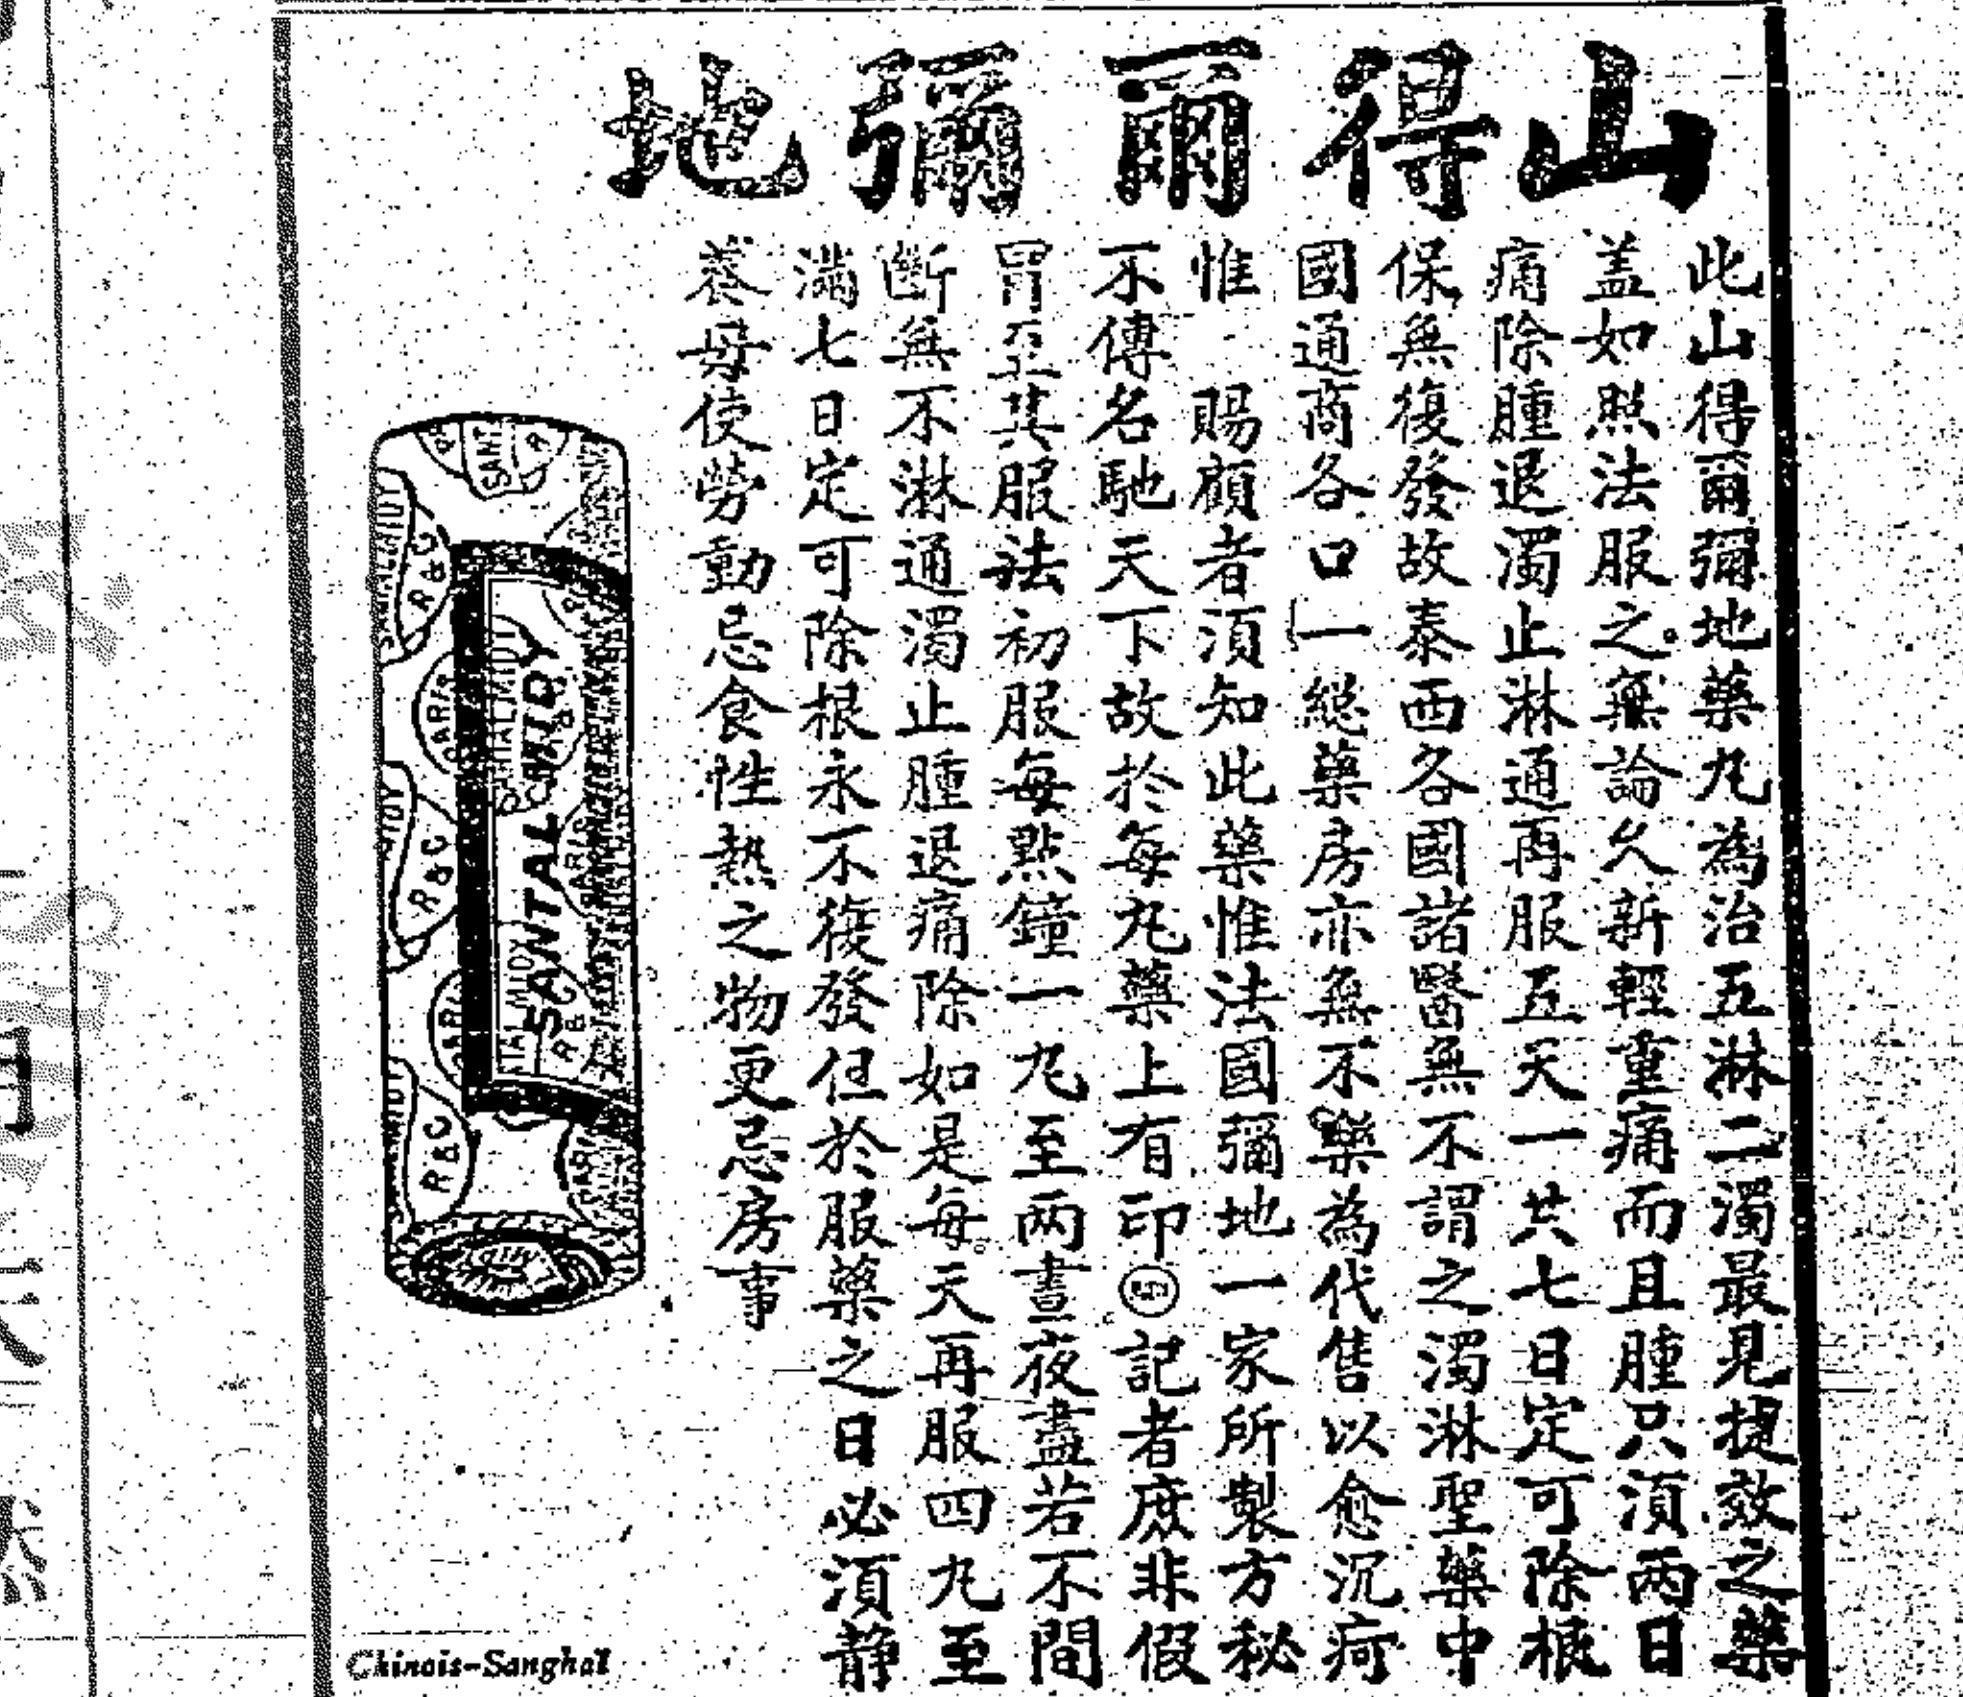 山得爾彌地
此山得爾彌地藥丸為治五淋二濁最見捷效之藥
盖如照法服之。無論久新輕重痛而且腫只須兩日
痛除腫退濁止淋通再服五天一共七日定可除根
保無復發故泰西各國諸醫無不謂之濁淋聖藥中
國通商各口一總藥房亦無不樂為代售以愈沉疴
惟　賜顧者須知此藥惟法國彌地一家所製方秘
不傳名馳天下故於每丸藥上有印記者庶非假
冒至其服法初服每點鐘一丸至兩晝夜盡若不間
斷無不淋通濁止腫退痛除如是每天再服四丸至
滿七日定可除根永不復發但於服藥之日必須靜
養毋使勞動忌食性熱之物更忌房事
SANTAL MIDY
SANTALMIDY
PARIS
R&C
Chinois-Sanghaï